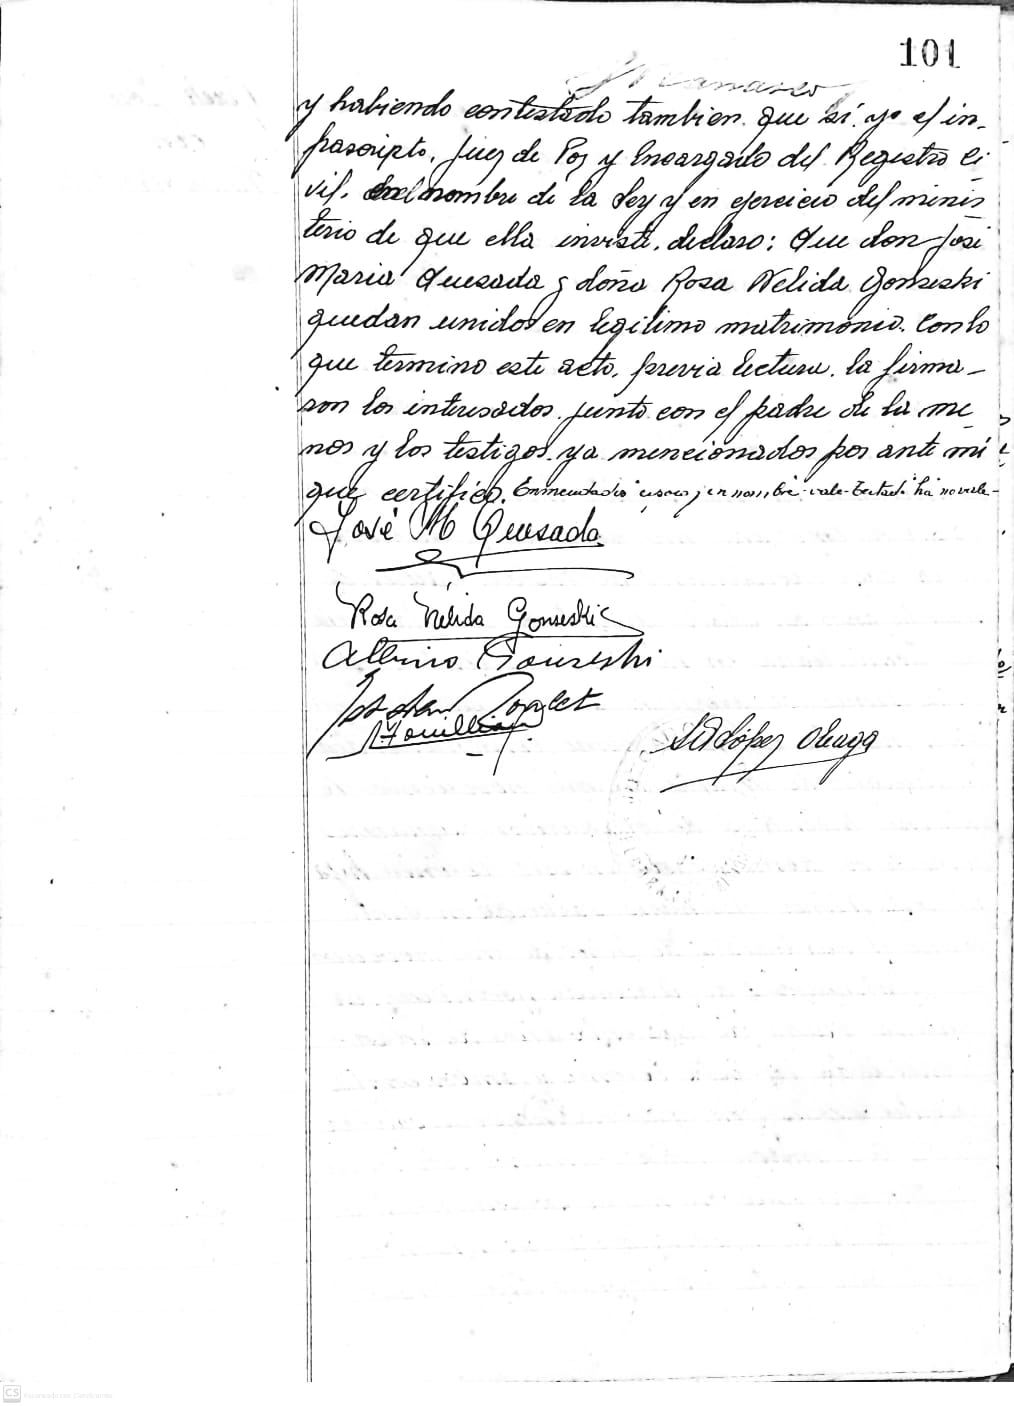 101
y habiendo contestado tambien que sí: yo el in-
frascripto, Juez de Paz y Encargado del Registro Ci-
vil, en el nombre de la Ley y en ejercicio del minis
terio de que ella inviste, declaro: Que don José
Maria Quesada y doña Rosa Nelida Gonseski
quedan unidos en legitimo matrimonio. Con lo
que termino este acto, previa lectura, la firma-
ron los interesados junto con el padre de la me
nor y los testigos ya mencionados por ante mí
que certifico. Enmendado en nombre vale-Testado ha no vale-
José M Quesada
Rosa Nélida Gonseski
Albino Gonseski
López
CS